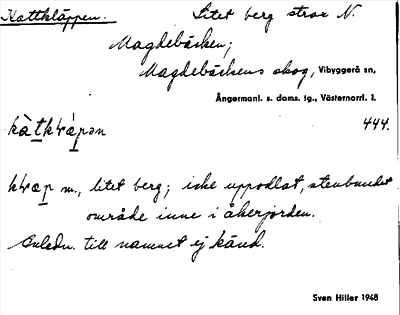 Kattkläppen. Litet berg strax N.
Magdebäcken;
Magdebäckens skog, Vibyggerå sn,
Ångermanl. s. doms. tg., Västernorrl. l.
444.
m., litet berg; icke uppodlat, stenbundet
område inne i åkerjorden.
Anledn. till namnet ej känd.
Sven Hiller 1948